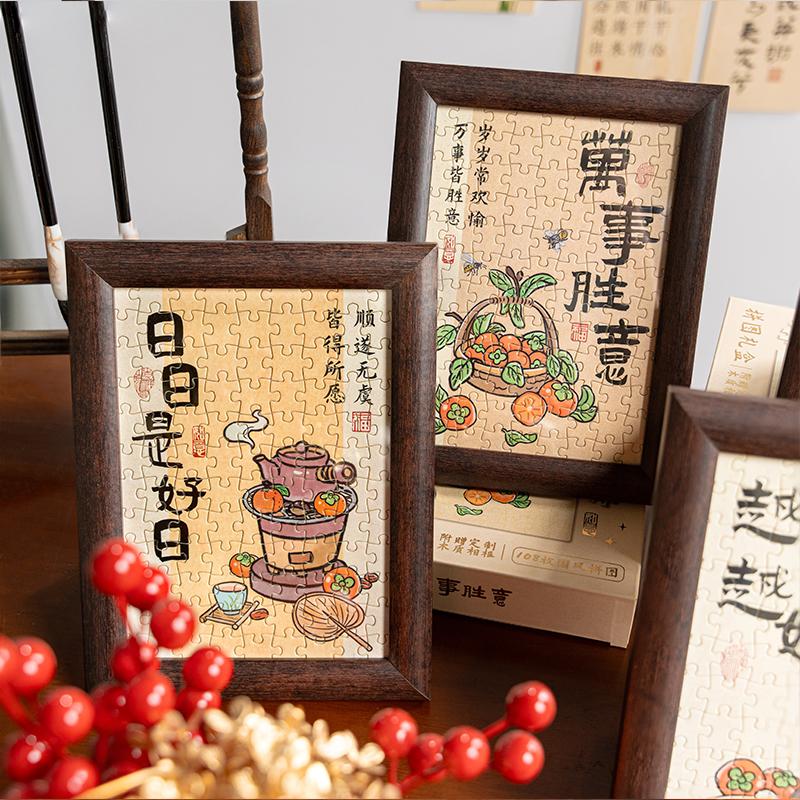 日日是好日
顺遂无虞
皆得所愿
福
萬事胜意
岁岁常欢愉
万事皆胜意
福
越
越
拼图礼盒
附赠定制
木质相框
108枚国风拼图
事胜意